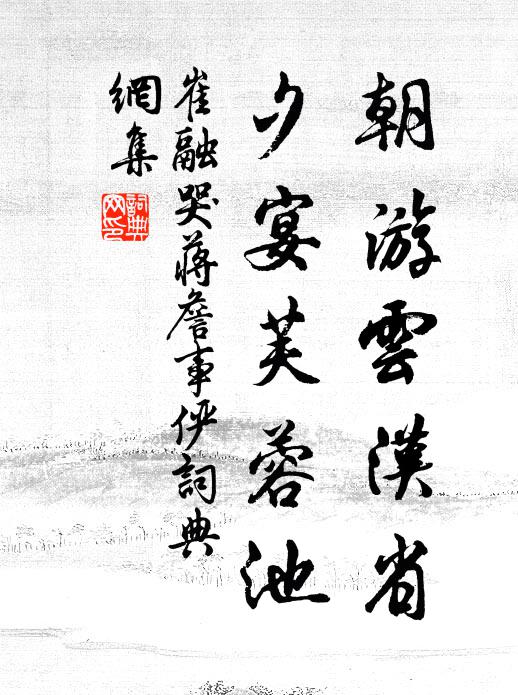 朝游雲漢省
夕宴芙蓉池
崔融哭蔣詹事俨詞典
網集
詞典
网印